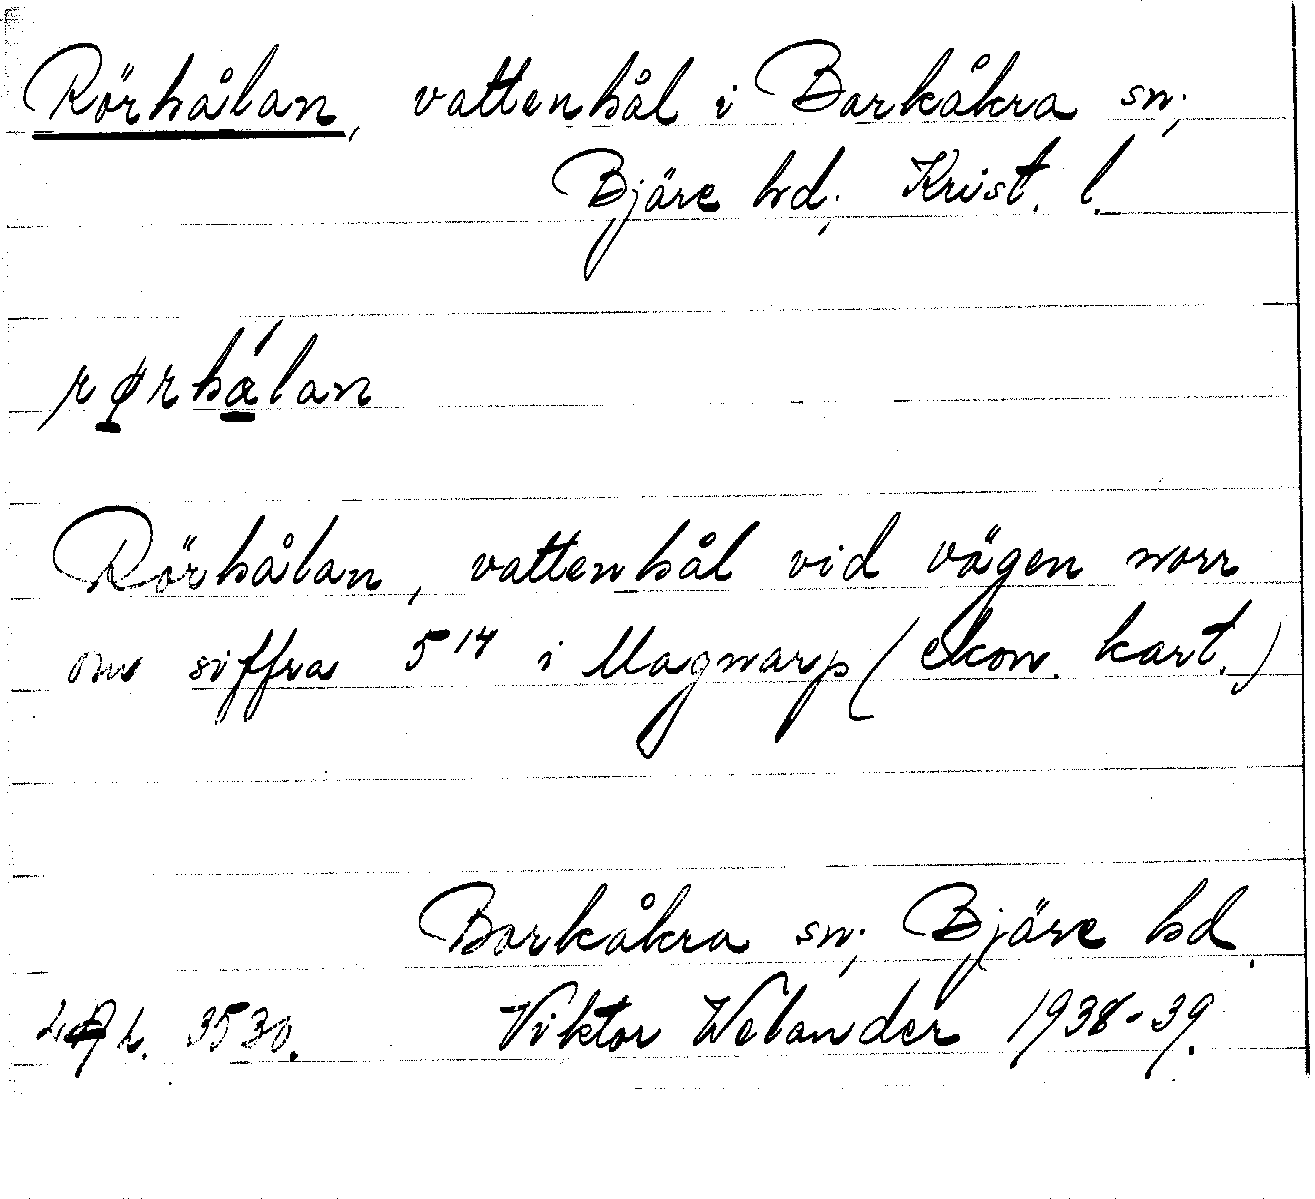 Rörhålan, vattenhål i Barkåkra sn;
Bjäre hd; Krist. l.
rø̱rhá̱lan
Rörhålan, vattenhål vid vägen norr
om siffra 5¹⁴ i Magnarp (ekon. kart.)
Barkåkra sn; Bjäre hd.
3530. Viktor Welander 1938-39.